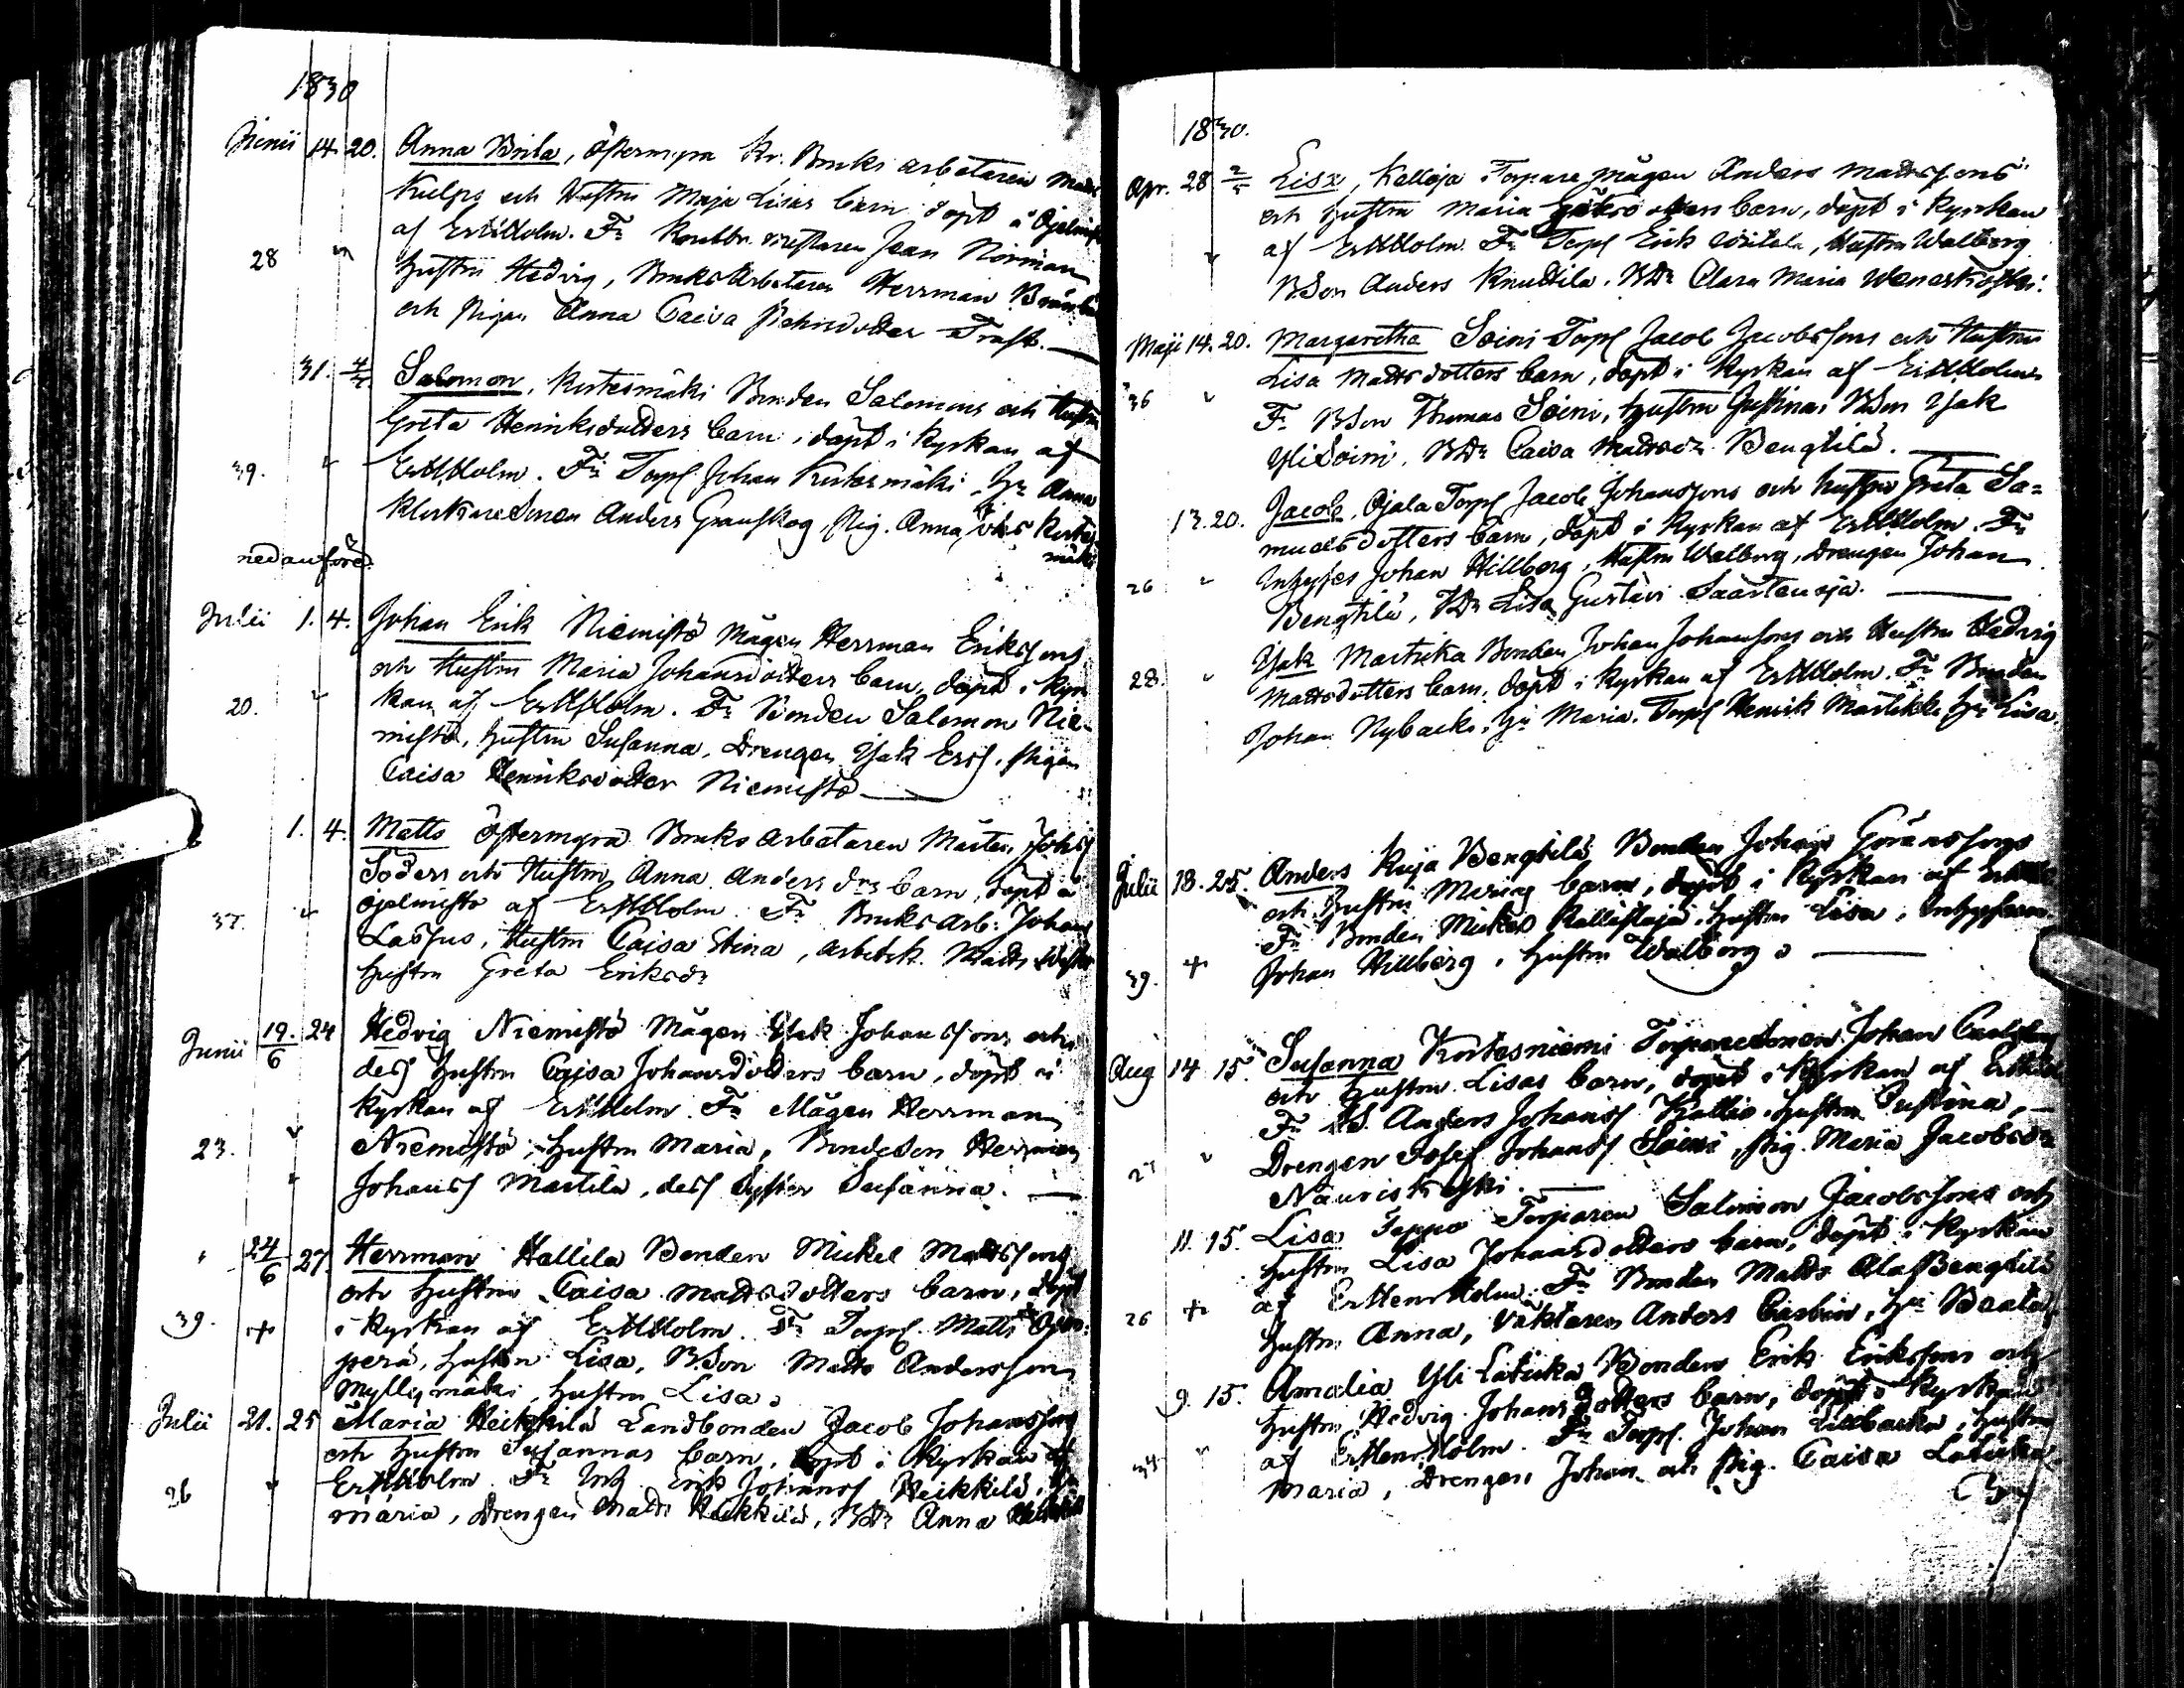 1830
Junii 14. 20. Anna Brita, Östermyra Kr. Bruks arbetaren Matts
Kulps och Hustru Maja Lisas barn döpt å Ojelmisto
af ErHHolm. Fr
28 Hustru Hedvig, Bruks Arbetaren Herrman
och Pigan Anna Caisa
31. 4/7 Salomon, Kortesmäki Bonden Salomons och Hustru
Greta Henriksdotters barn, döpt i Kyrkan af
39. " ErHHolm. Fr Torp Johan Kortesmäki, Hu Anna
Anders Granskog, Pig. Anna Kortes-
mäki
nedanföre
Julii 1. 4. Johan Erik Niemistö Mågen Herrman Erikssons
och Hustru Maria Johansdotters barn, döpt i Kyr-
20. " kan af ErHHolm. Fr Bonden Salomon Nie-
mistö, Hustru Susanna, Drengen Isak Ers, Pigan
Caisa Henriksdotter Niemistö
1. 4. Matts Östermyra Bruks arbetaren Mårten Johs
Söders och Hustru Anna Anders drs barn, döpt å
37. " Ojelmisto af ErHHolm. Fr Bruks arb: Johan
Lassus, Hustru Caisa Stina, arbetsk. Matts
Hustru Greta Eriksdr
Junii 19./6 24 Hedvig Niemistö Mågen Isak Johanssons och
dess Hustru Caisa Johansdotters barn, döpt i
Kyrkan af ErHHolm. Fr Mågen Herrman
23. " Niemistö, Hustru Maria, BondeSon Herrman
" Johanss Martila, dess Syster Susanna.
" 24/6 27. Herrman Hallila Bonden Mickel Mattssons
och Hustru Caisa Mattsdotters barn, döpt
39. + i Kyrkan af ErHHolm. Fr Torp. Matts
perä, Hustru Lisa, B.Son Matts Andersson
Myllymäki, Hustru Lisa.
Julii 21. 25 Maria Heikkilä Landbonden Jacob Johanssons
och Hustru Susannas barn, döpt i Kyrkan af
26 " ErHHolm. Fr Inh. Erik Johanss Heikkilä, Hu
Maria, Drengen Matts Heikkilä, BDr Anna Heikkilä
1830.
Apr. 28 2/5 Lisa, Kallioja Torpare mågen Anders Mattssons
och Hustru Maria barn, döpt i Kyrkan
" af ErHHolm. Fr Torp Erik, Hustru Walborg
BSon Anders Knuttila. BDr Clara Maria Wenerskoski.
Maji 14. 20. Margaretha Soini Torp Jacob Jacobssons och Hustru
Lisa Mattsdotters barn, döpt i Kyrkan af ErHHolm
36 " Fr BSon Thomas Soini, Hustru Justina, BSon Isak
YliSoini, BDr Caisa Mattsdr Bengtilä.
13. 20. Jacob, Ojala Torp Jacob Johanssons och Hustru Greta Sa=
muelsdotters barn, döpt i Kyrkan af ErHHolm. Fr
26 " Inhyses Johan Hillberg, Hustru Walborg, Drengen Johan
Bengtilä, BDr Lisa Gustavi Saartenoja.
28. " Isak Martikka Bonden Johan Johanssons och Hustru Hedvig
Mattsdotters barn, döpt i Kyrkan af ErHHolm. Fr Bonden
Johan Nybacka, Hu Maria, Torp Henrik Martikka Hu Lisa.
Julii 18. 25. Anders Kuja Bengtilä Bonden Johan Göranssons
och Hustru Marias barn, döpt i Kyrkan af
Fr Bonden Mickel Hustru Lisa, Inhyses
39. + Johan Hillberg, Hustru Walborg.
Aug 14 15. Susanna Kortesniemi Johan
och Hustru Lisas barn, döpt i Kyrkan af
Fr BS. Anders Johanss Kallio, Hustru Justina,
27 " Drengen Josef Johanss Soini, Pig. Maria Jacobsdr
Nauriskoski.
11. 15. Lisa Teppo Torparen Salomon Jacobssons och
Hustru Lisa Johansdotters barn, döpt i Kyrkan
26 + af ErHenrHolm. Fr Bonden Matts AlaBengtilä
Hustru Anna, Väktaren Anders, Hu Beata
9. 15. Amalia Yli Latikka Bonden Erik Erikssons och
Hustru Hedvig Johansdotters barn, döpt i Kyrkan
34 " af ErHenrHolm. Fr Torp. Johan Lillbacka, Hustru
Maria, Drengen Johan och Pig. Caisa Latikka